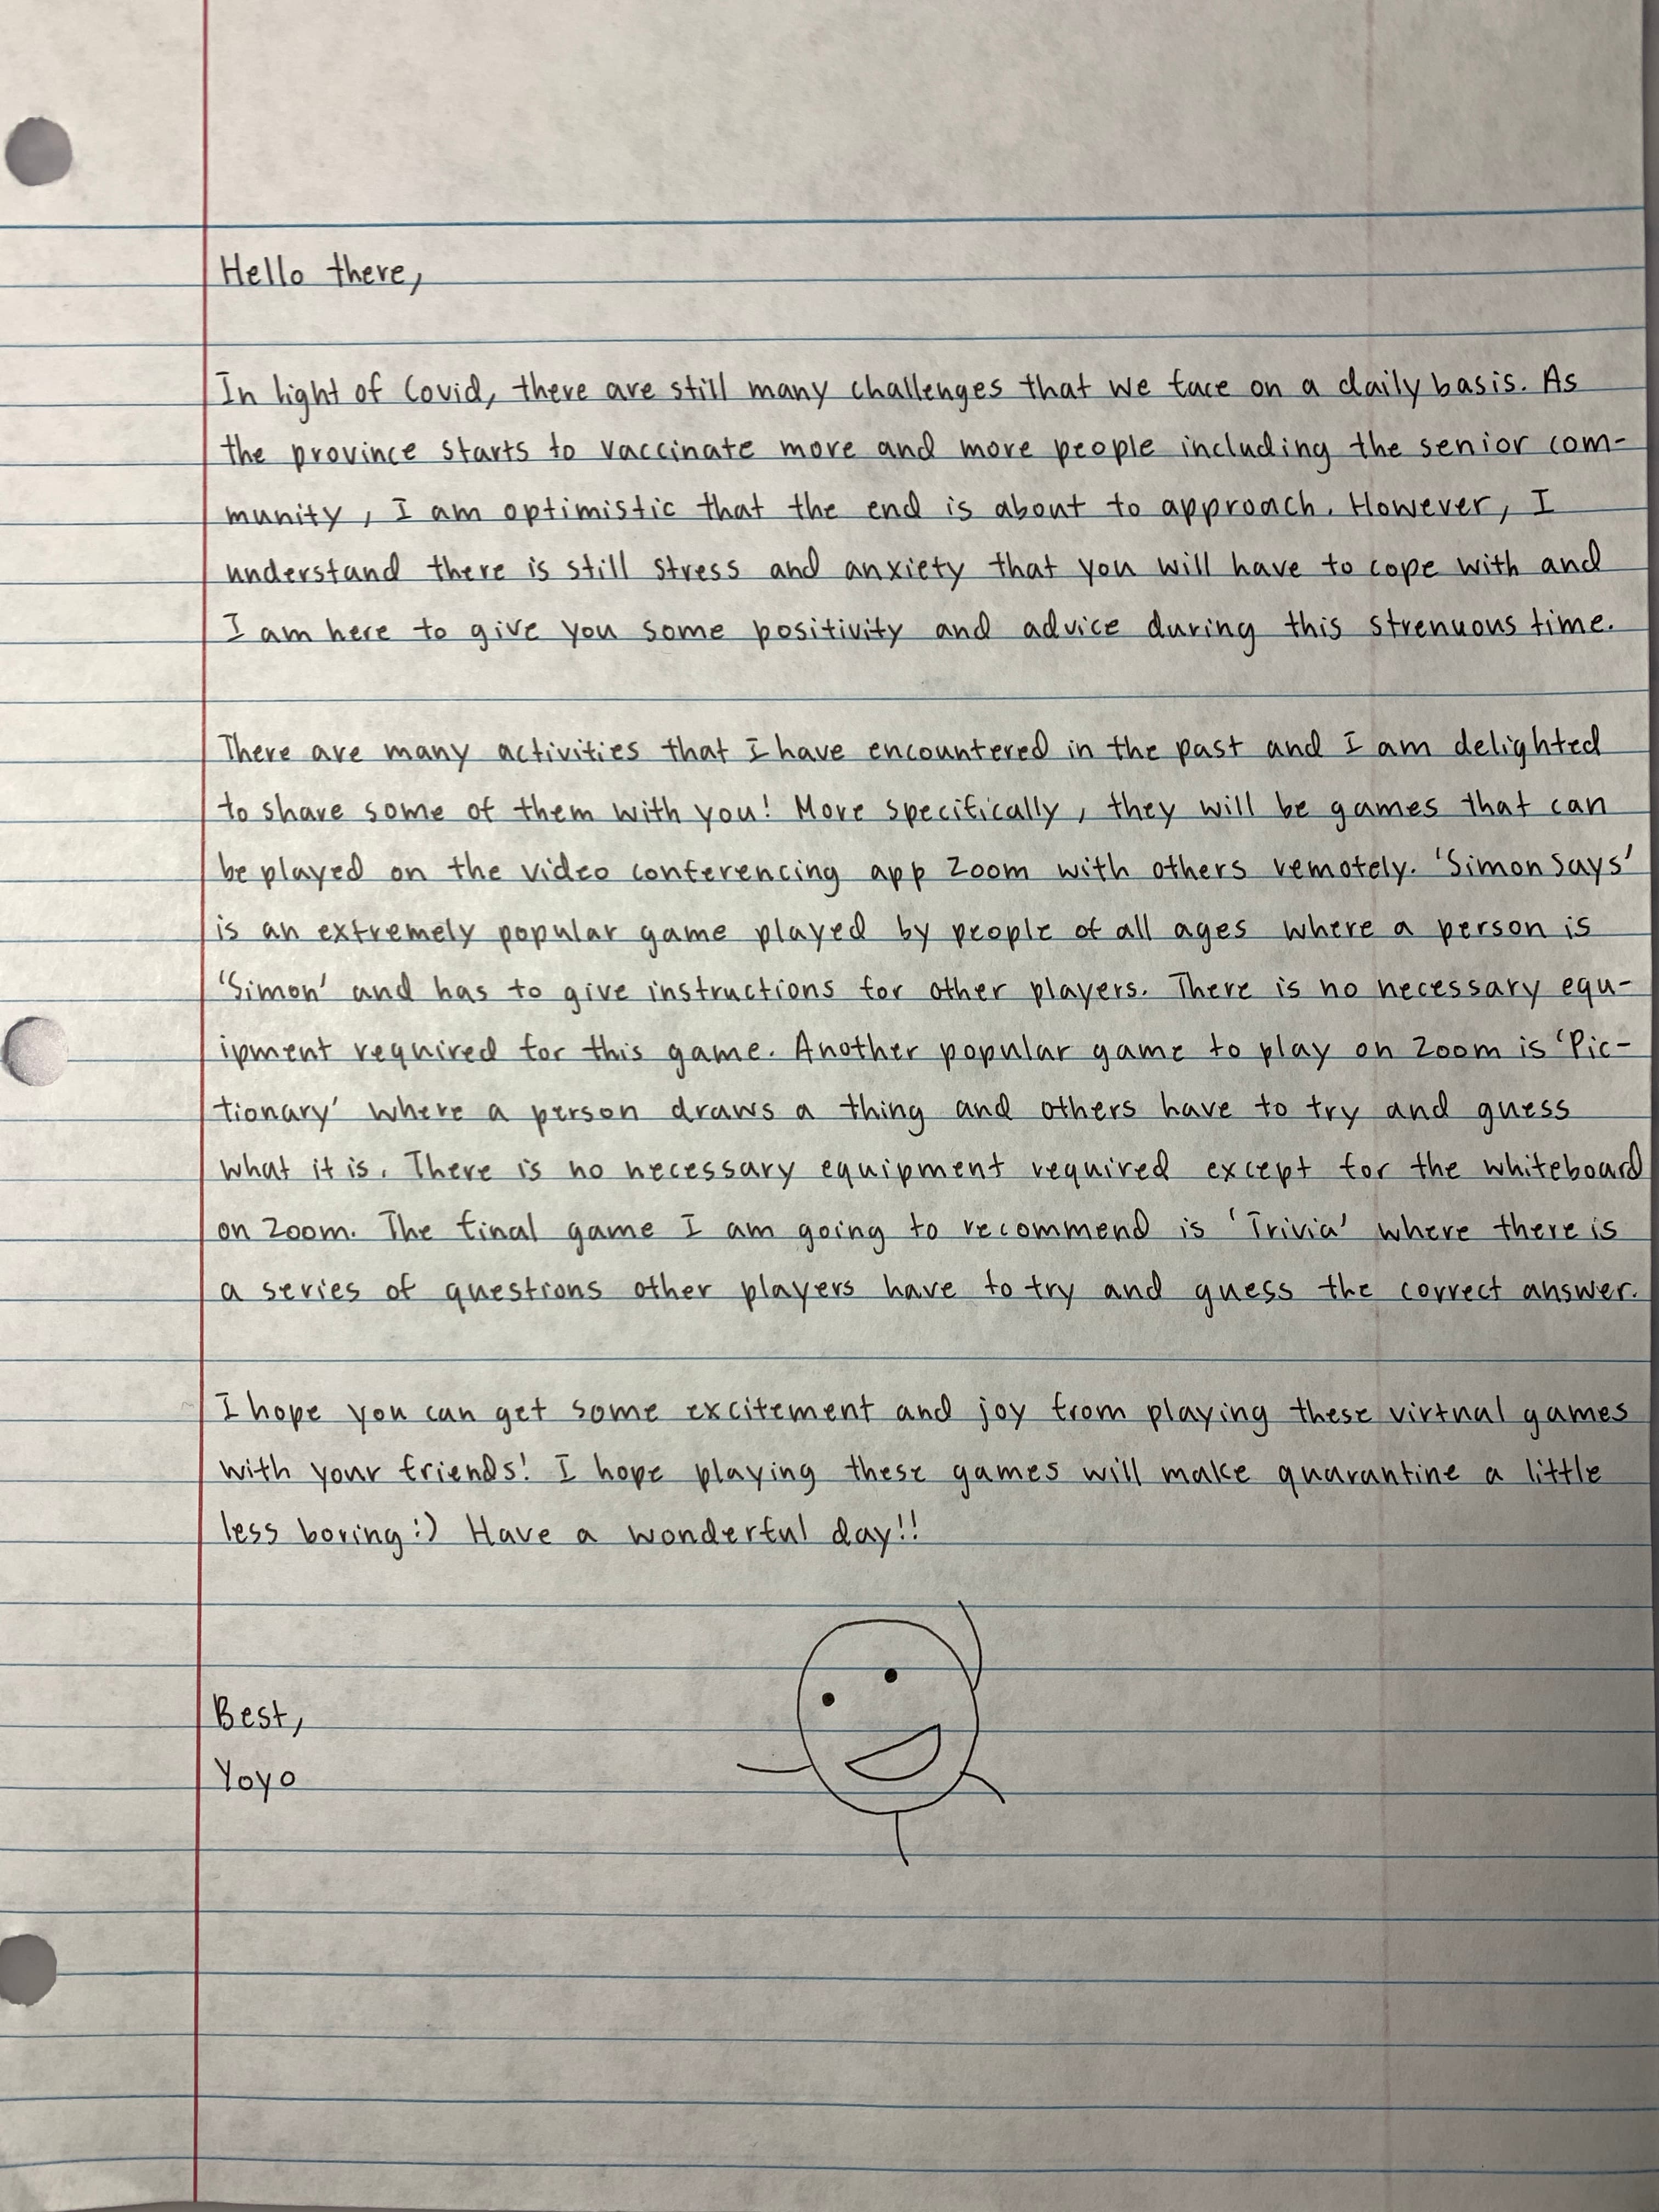 Hello there,
In light of Covid, there are still many challenges that we face on a daily basis. As
the province starts to vaccinate more and more people including the senior com-
munity, I am optimistic that the end is about to approach. However, I
understand there is still stress and anxiety that you will have to cope with and
I am here to give you some positivity and advice during this strenuous time.
There are many activities that I have encountered in the past and I am delighted
to share some of them with you! More specifically, they will be games that can
be played on the video conferencing app Zoom with others remotely. 'Simon Says'
is an extremely popular game played by people of all ages where a person is
'Simon' and has to give instructions for other players. There is no necessary equ-
ipment required for this game. Another popular game to play on Zoom is 'Pic-
tionary' where a person draws a thing and others have to try and guess
what it is. There is no necessary equipment required except for the whiteboard
on Zoom. The final game I am going to recommend is 'Trivia' where there is
a series of questions other players have to try and guess the correct answer.
I hope you can get some excitement and joy from playing these virtual games
with your friends! I hope playing these games will make quarantine a little
less boring :) Have a wonderful day!!
Best,
Yoyo